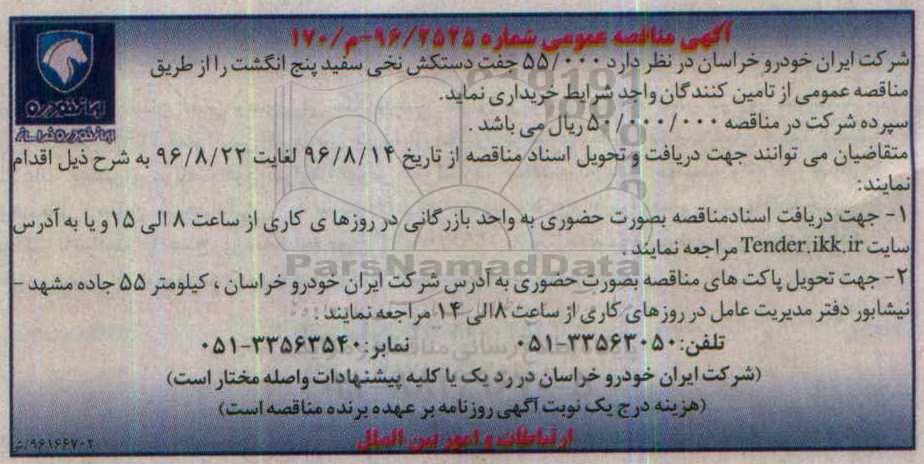 آگهی مناقصه عمومی شماره ۹۶/۲۵۲۵-م/۱۷۰
شرکت ایران خودرو خراسان در نظر دارد ۵۵/۰۰۰ جفت دستکش نخی سفید پنج انگشت را از طریق
مناقصه عمومی از تامین کنندگان واجد شرایط خریداری نماید.
سپرده شرکت در مناقصه ۵۰/۰۰۰/۰۰۰ ریال می باشد .
متقاضیان می توانند جهت دریافت و تحویل اسناد مناقصه از تاریخ ۹۶/۸/۱۴ لغایت ۹۶/۸/۲۲ به شرح ذیل اقدام
نمایند:
۱- جهت دریافت اسنادمناقصه بصورت حضوری به واحد بازرگانی در روزها ی کاری از ساعت ۸ الی ۱۵و یا به آدرس
سایت Tender.ikk.ir مراجعه نمایند .
۲- جهت تحویل پاکت های مناقصه بصورت حضوری به آدرس شرکت ایران خودرو خراسان ، کیلومتر ۵۵ جاده مشهد -
نیشابور دفتر مدیریت عامل در روزهای کاری از ساعت ۸الی ۱۴ مراجعه نمایند .
تلفن: ۳۳۵۶۳۰۵۰-۰۵۱ نمابر: ۳۳۵۶۳۵۴۰-۰۵۱
(شرکت ایران خودرو خراسان در رد یک یا کلیه پیشنهادات واصله مختار است)
(هزینه درج یک نوبت آگهی روزنامه بر عهده برنده مناقصه است)
ارتباطات و امور بین الملل
۹۶۱۶۶۷۰۲/ش
ایران خودرو
ایران خودرو خراسان
ParsNamadData